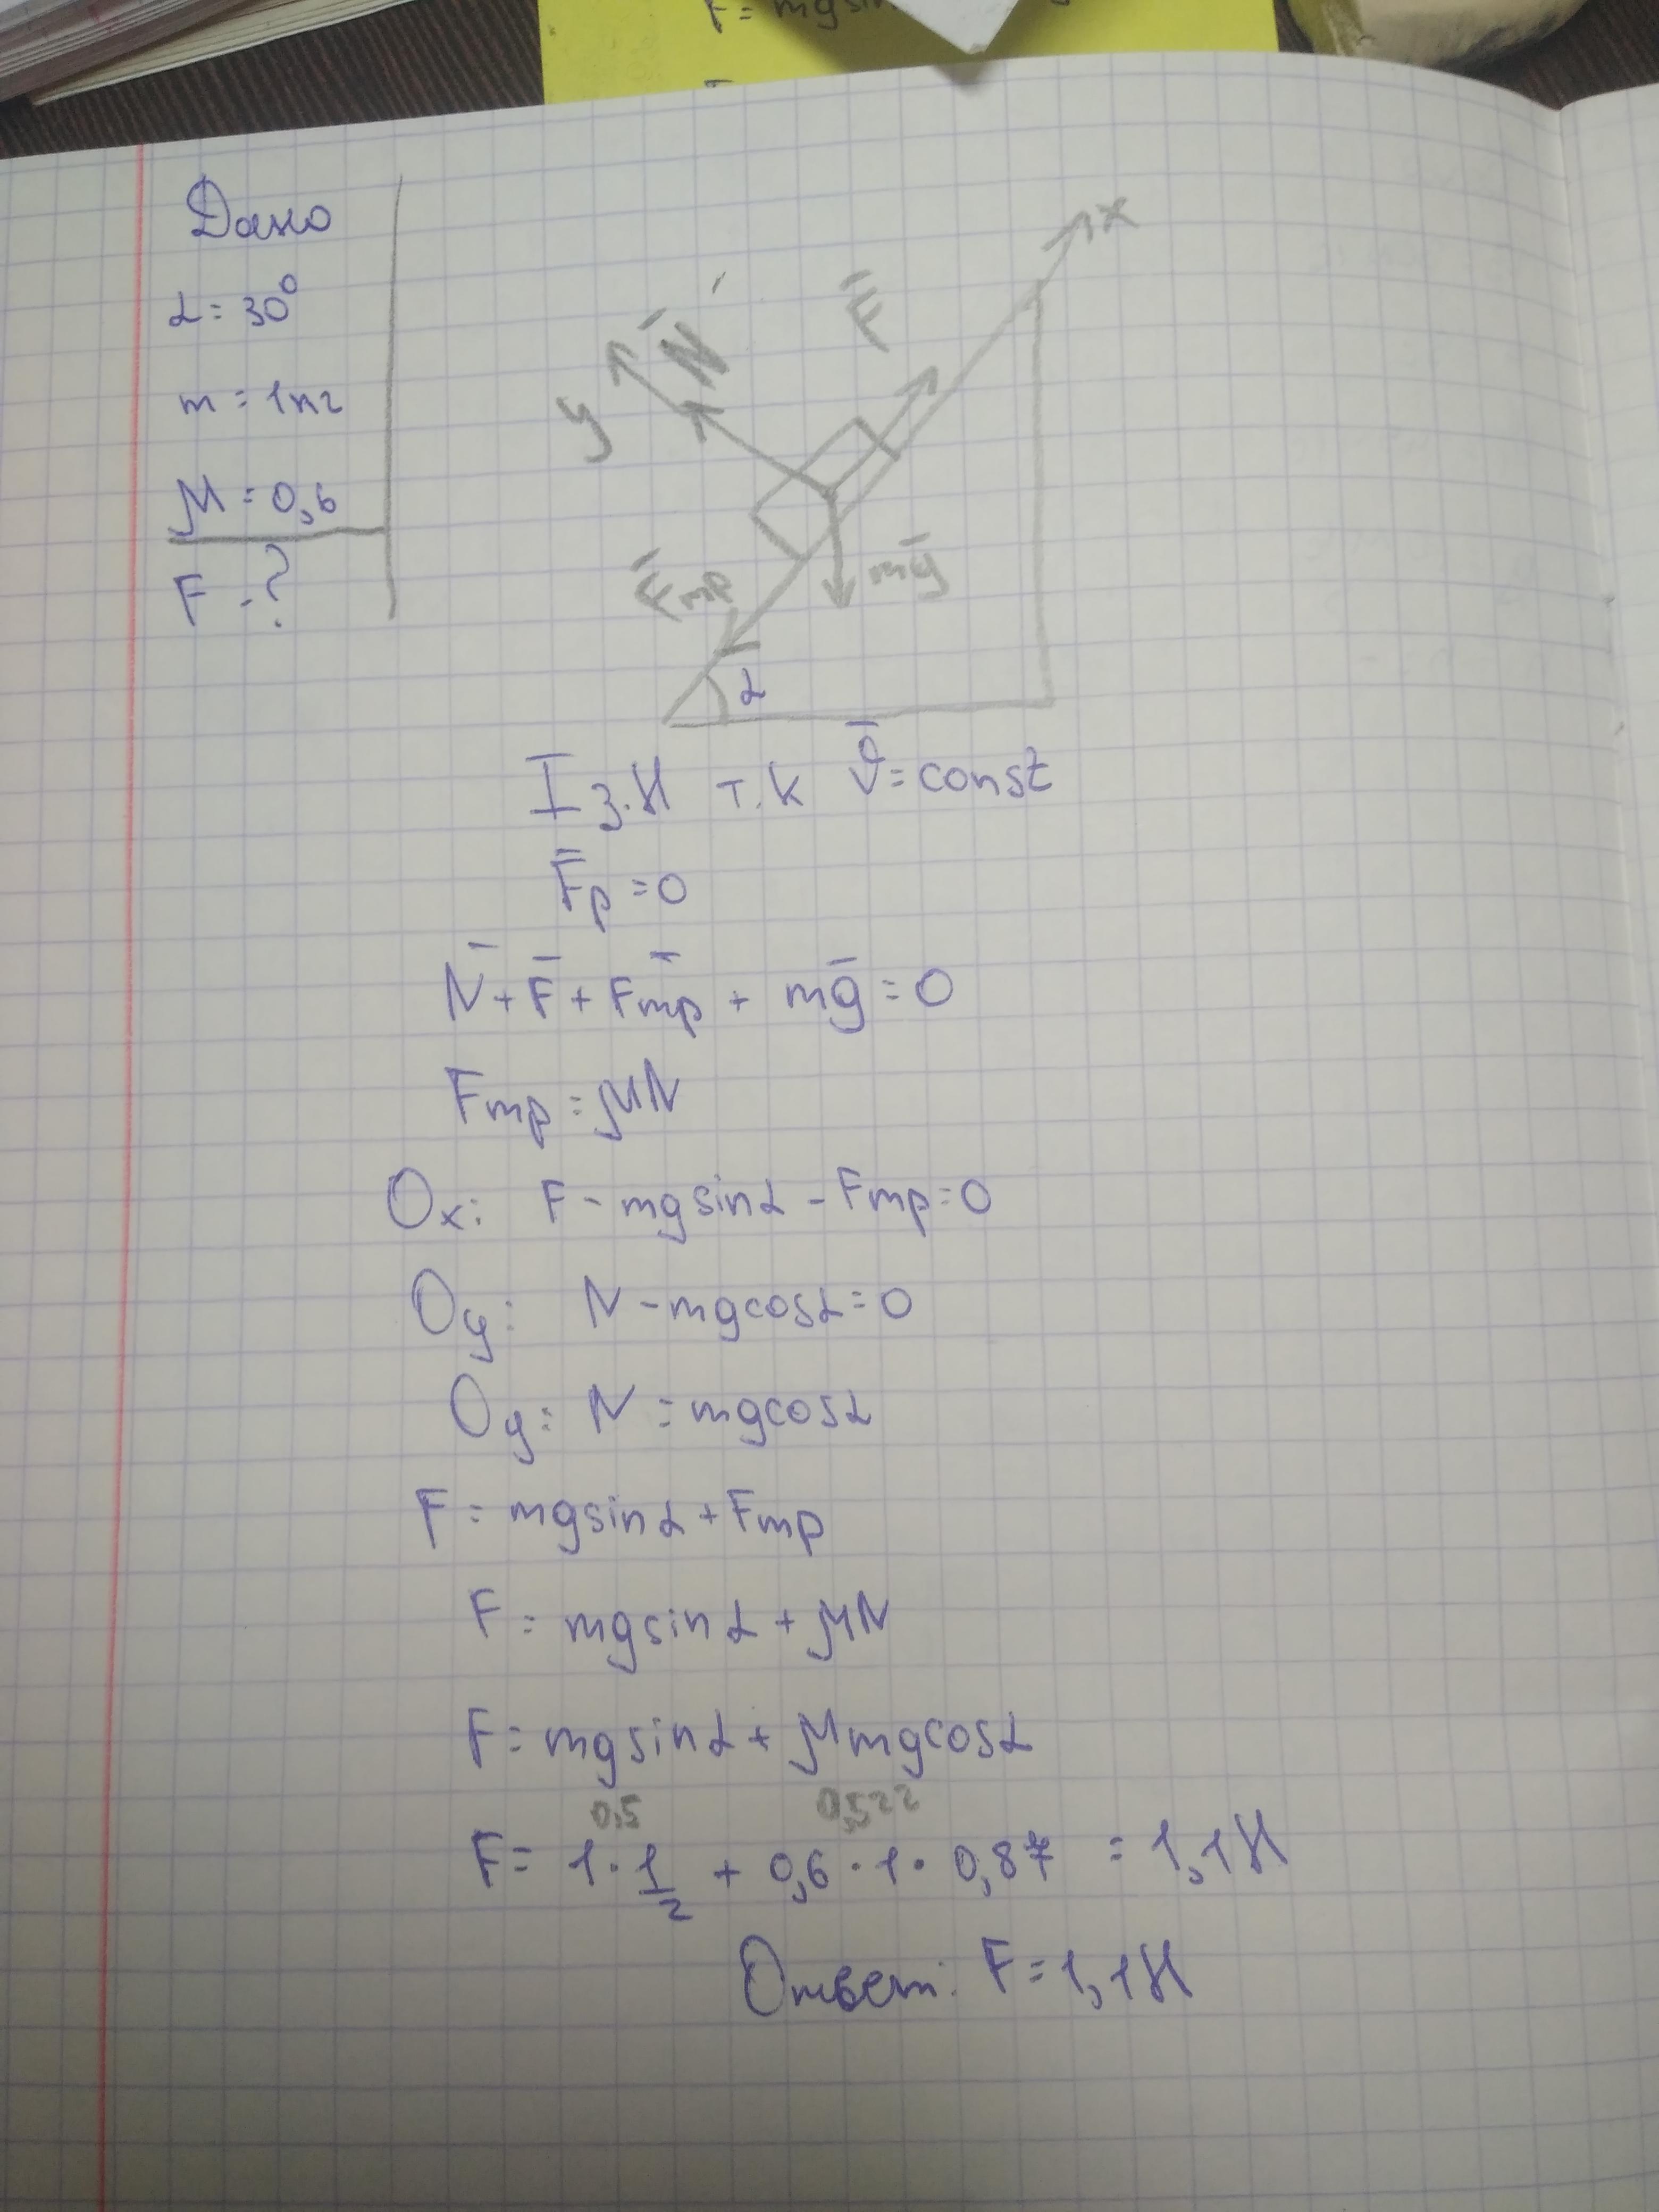 F = mg sin
Дано
α = 30°
m = 1кг
μ = 0,6
F - ?
x
F̄
N̄
y
F̄тр
mḡ
α
I з.Н т.к v̄ = const
F̄р = 0
N̄ + F̄ + F̄тр + mḡ = 0
Fтр = μN
Ox: F - mg sinα - Fтр = 0
Oy: N - mg cosα = 0
Oy: N = mg cosα
F = mg sinα + Fтр
F = mg sinα + μN
F = mg sinα + μmg cosα
0,5 0,522
F = 1 · 1/2 + 0,6 · 1 · 0,87 = 1,1Н
Ответ: F = 1,1Н